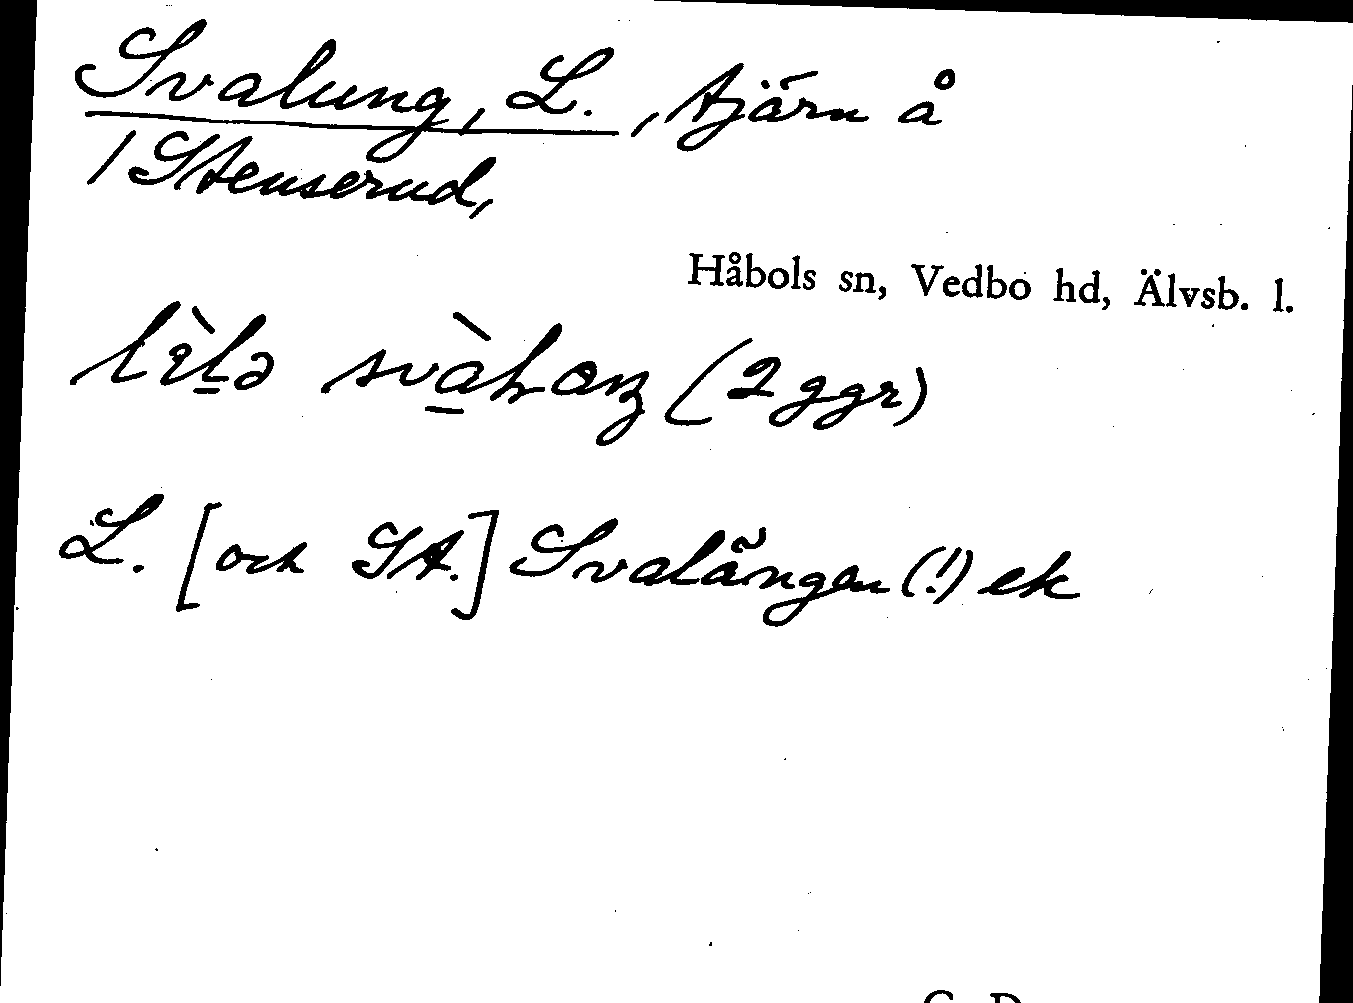 Svalung, L., tjärn å
/ Stenserud,
Håbols sn, Vedbo hd, Älvsb. l.
(2 ggr)
L. [och St.] Svalången (!) ek